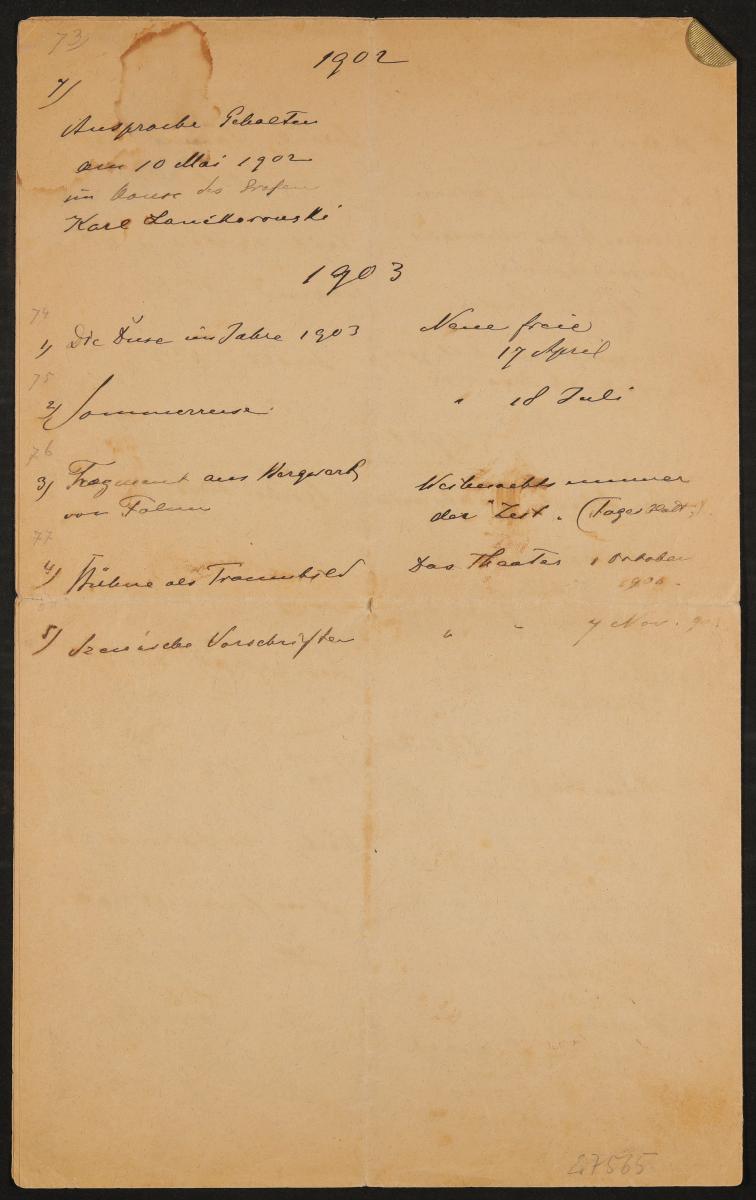 73)
1902
7)
Ansprache Gehalten
am 10 Mai 1902
im Hause des Grafen
Karl Lanckoronski
1903
74
1) Die Duse im Jahre 1903 Neue freie
17 April
75
2) Sommerreise. " 18 Juli
76
3) Fragment aus Bergwerk Weihnachtsnummer
von Falun der "Zeit". (Tagesblatt)
77
4) Bühne als Traumbild Das Theater 1 Oktober
5) Szenische Vorschriften " " 7 Nov. 903
47565